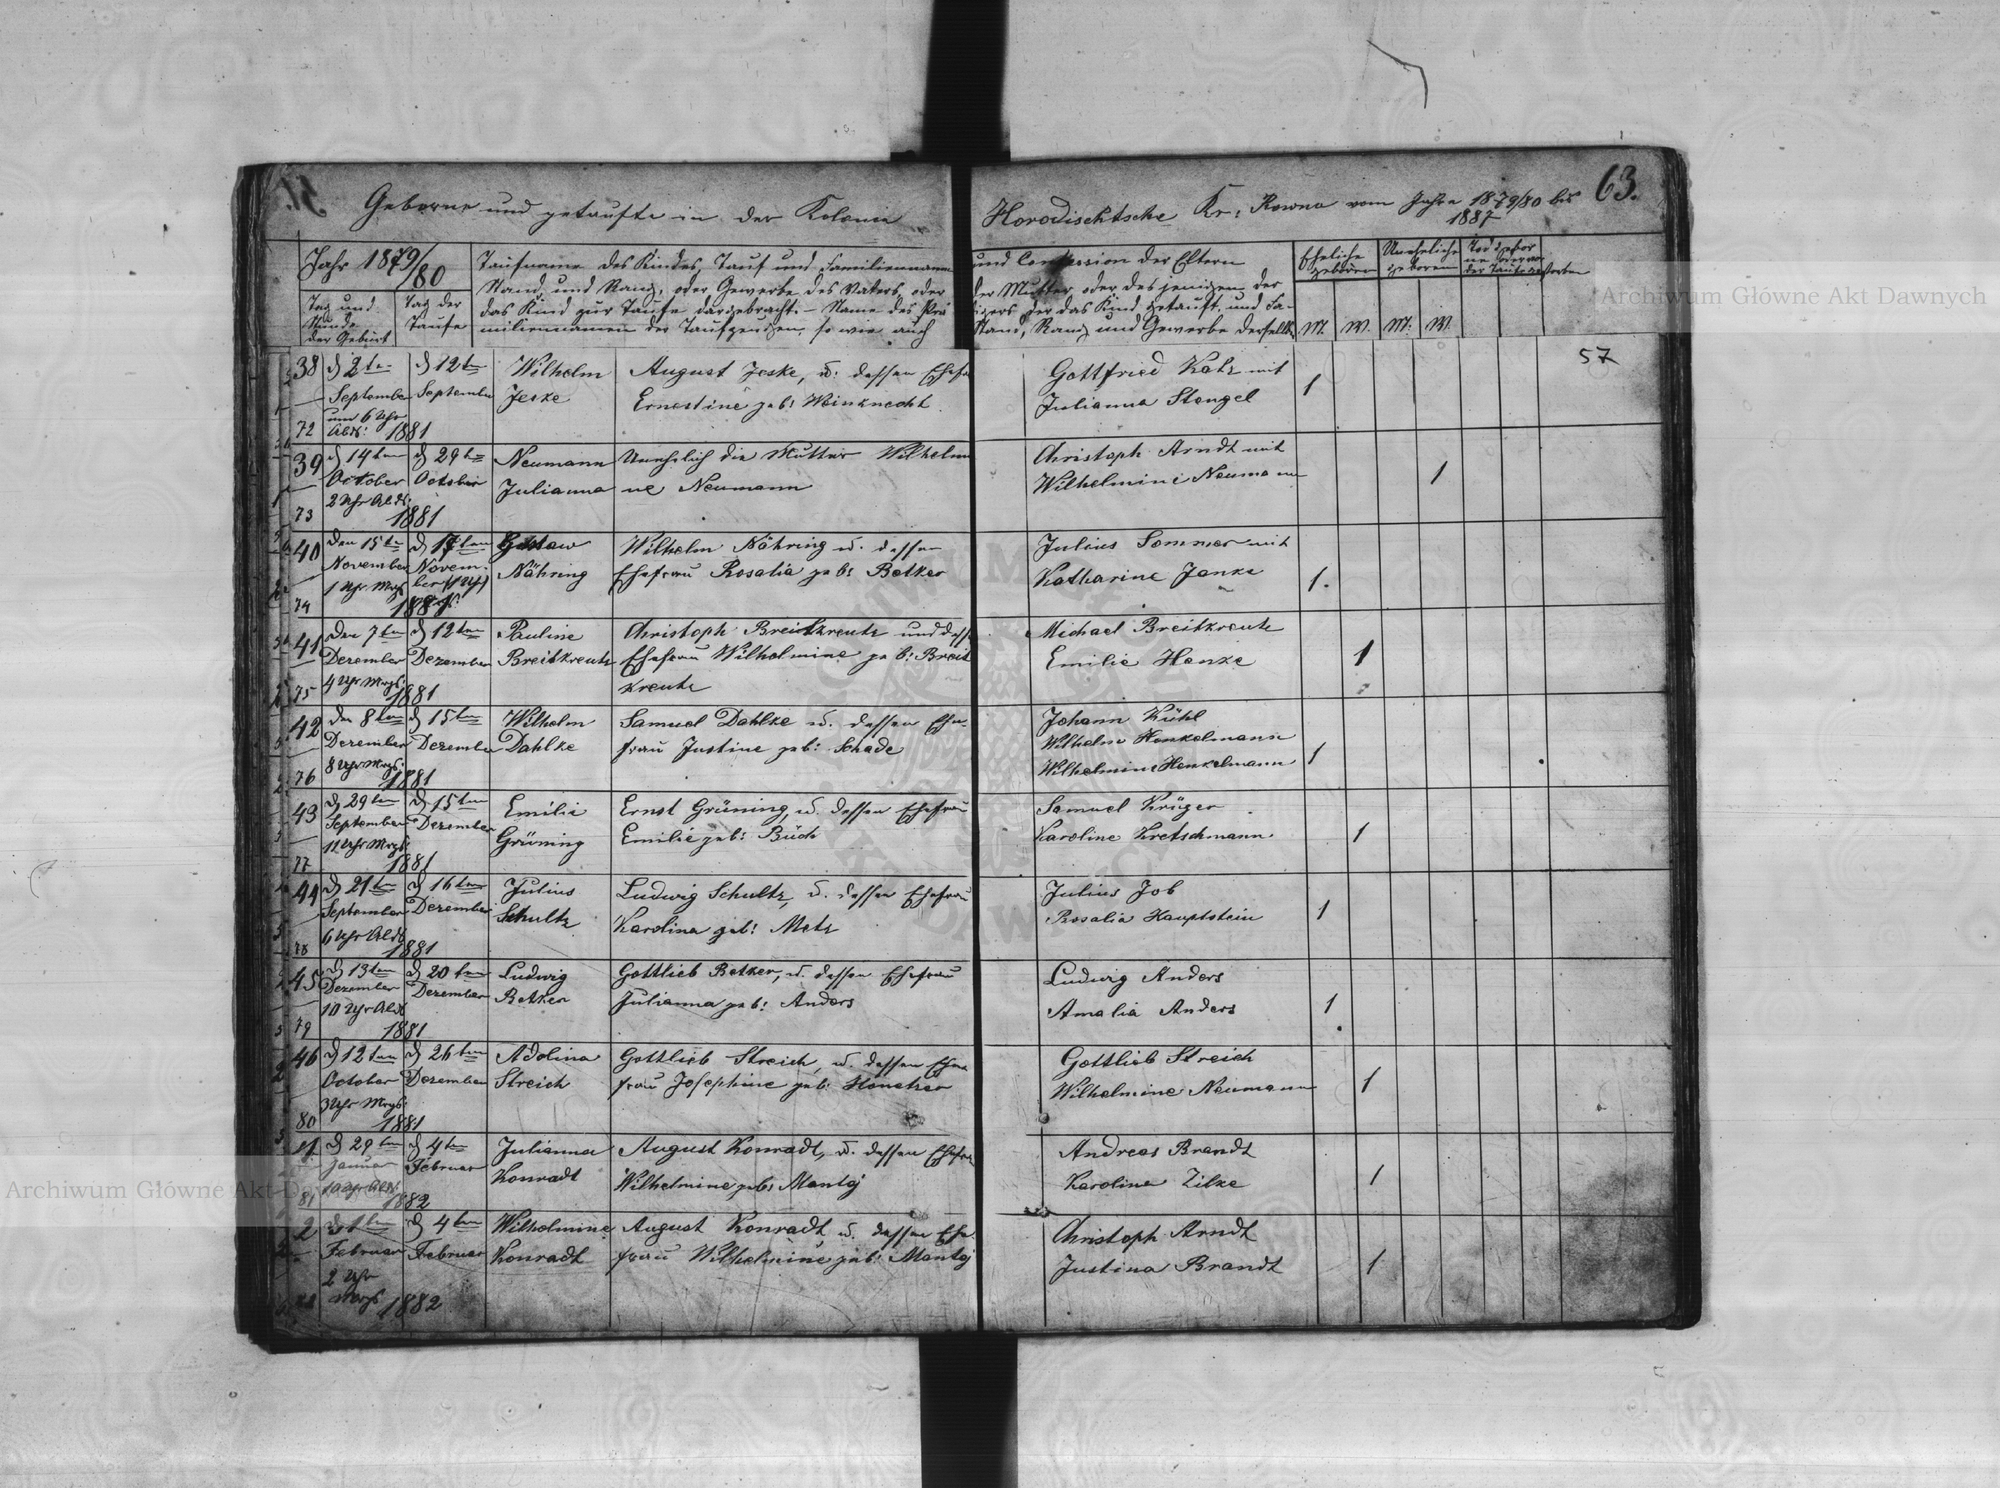 Geborne und getaufte in der Kolonie Horodischtsche Kr: Rowno vom Jahre 1879/80 bis 1887
63.
Jahr 1879/80
Tag und Stunde der Geburt
Tag der Taufe
Taufname des Kindes, Tauf und Familienname und Confession der Eltern
Stand und Rang, oder Gewerbe des Vaters, oder der Mutter oder desjenigen der
das Kind zur Taufe dargebracht. – Name des Pre digers der das Kind getauft, und Fa-
miliennamen der Taufzeugen, so wie auch Stand, Rang und Gewerbe derselben
Eheliche geboren
Uneheliche geboren
Todtgebor
der Taufe gestorben
M. W. M. W.
57
38 d 2ten d 12ten Wilhelm August Jeske, u. dessen Ehefr Gottfried Katz mit
September September Jeske Ernestine geb: Weinknecht Julianna Stengel 1
um 6 Uhr
72 Abds: 1881
39 d 14ten d 29ten Neumann Unehelich die Mutter Wilhelmi Christoph Arndt mit
October October Julianna ne Neumann Wilhelmine Neumann 1
2 Uhr Abds:
73 1881
40 Den 15ten d 17ten Gustaw Wilhelm Nähring u. dessen Julius Sommer mit
November Novem- Nähring Ehefrau Rosalia geb: Betker Katharine Janke 1.
1 Uhr Mrgs ber
74 1881
41 Den 7ten d 12ten Pauline Christoph Breitkreutz und dess Michael Breitkreutz
Dezember Dezember Breitkreutz Ehefrau Wilhelmine geb: Breit Emilie Henke 1
4 Uhr Mrgs: kreutz
75 1881
42 Den 8ten d 15ten Wilhelm Samuel Dahlke u. dessen Ehe- Johann Kühl
Dezember Dezember Dahlke frau Justine geb: Schade Wilhelm Henkelmann
8 Uhr Mrgs: Wilhelmine Henkelmann 1
76 1881
43 d 29ten d 15ten Emilie Ernst Grüning, u. dessen Ehefrau Samuel Krüger
September Dezember Grüning Emilie geb: Büch Karoline Kretschmann 1
11 Uhr Mrgs:
77 1881
44 d 21ten d 16ten Julius Ludwig Schultz, u. dessen Ehefrau Julius Job
September Dezember Schultz Karolina geb: Metz Rosalia Hauptstein 1
6 Uhr Abds
78 1881
45 d 13ten d 20ten Ludwig Gottlieb Betker, u. dessen Ehefrau Ludwig Anders
Dezember Dezember Betker Julianna geb: Anders Amalia Anders 1
10 Uhr Abds
79 1881
46 d 12ten d 26ten Adolina Gottlieb Streich, u. dessen Ehe- Gottlieb Streich
October Dezember Streich frau Josephine geb: Wilhelmine Neumann 1
3 Uhr Mrgs:
80 1881
1 d 29ten d 4ten Julianna August Konradt, u. dessen Ehefrau Andreas Brandt
Januar Februar Konradt Wilhelmine geb: Mantej Karolina Zilke 1
10 Uhr Abds
81 1882
2 d 1ten d 4ten Wilhelmine August Konradt u. dessen Ehe- Christoph Arndt
Februar Februar Konradt frau Wilhelmine geb: Mantej Justina Brandt 1
2 Uhr
Mrgs 1882
Archiwum Główne Akt Dawnych
Archiwum Główne Akt Dawnych